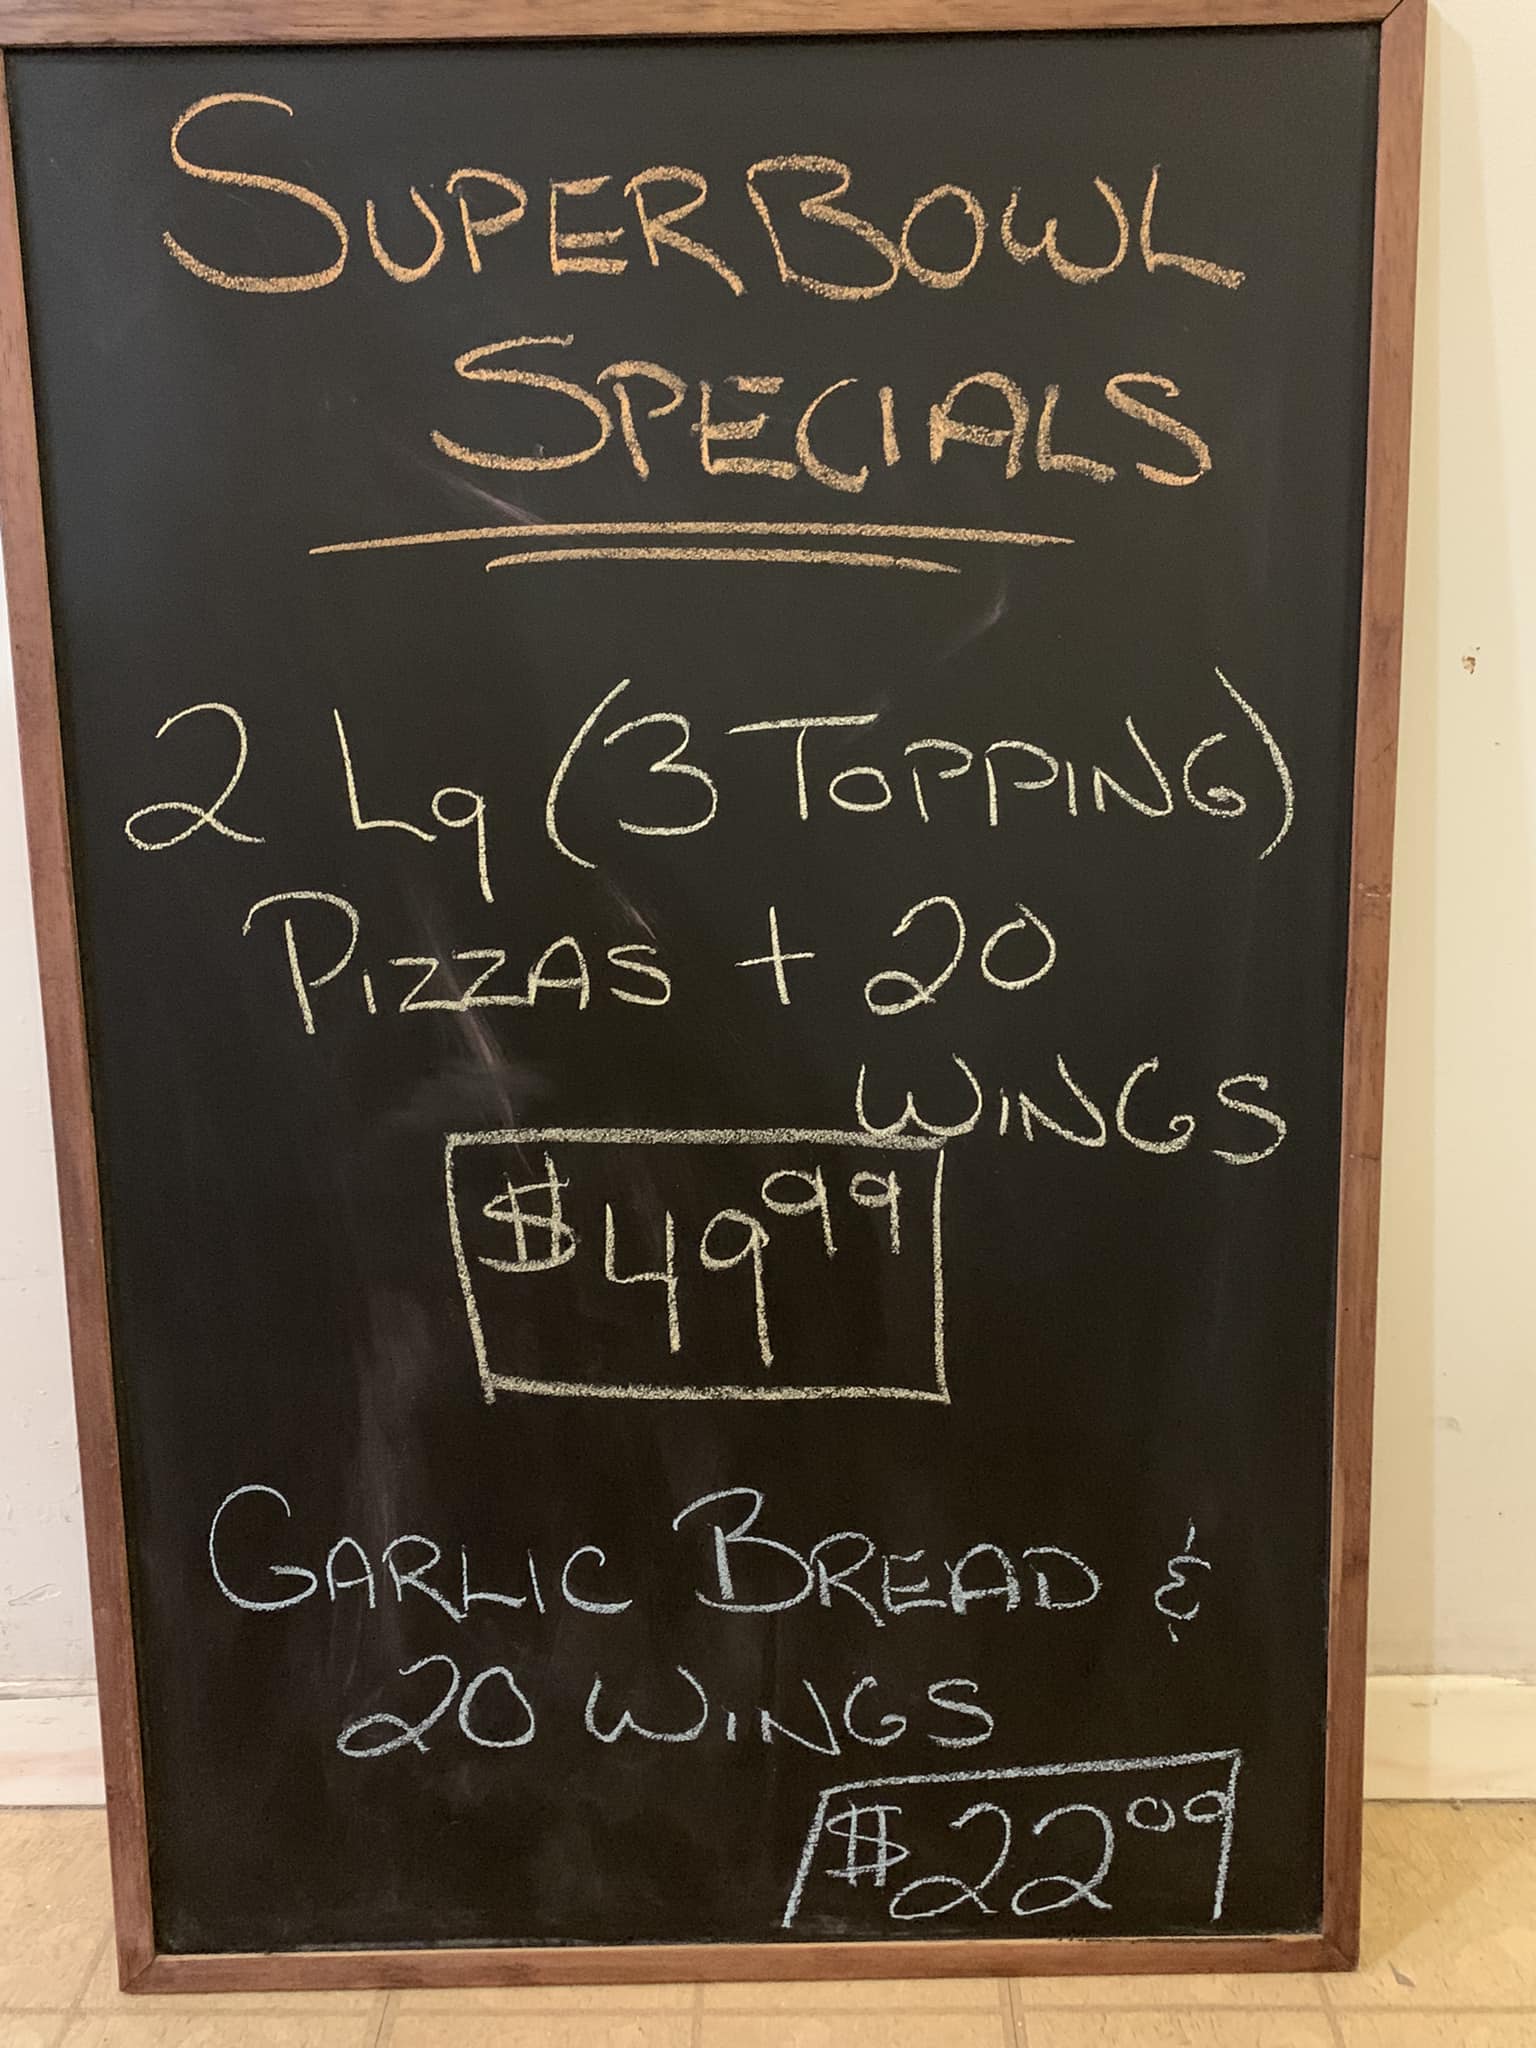 SUPERBOWL
SPECIALS
2 Lg (3 TOPPING)
PIZZAS + 20
WINGS
$49.99
GARLIC BREAD &
20 WINGS
$22.09